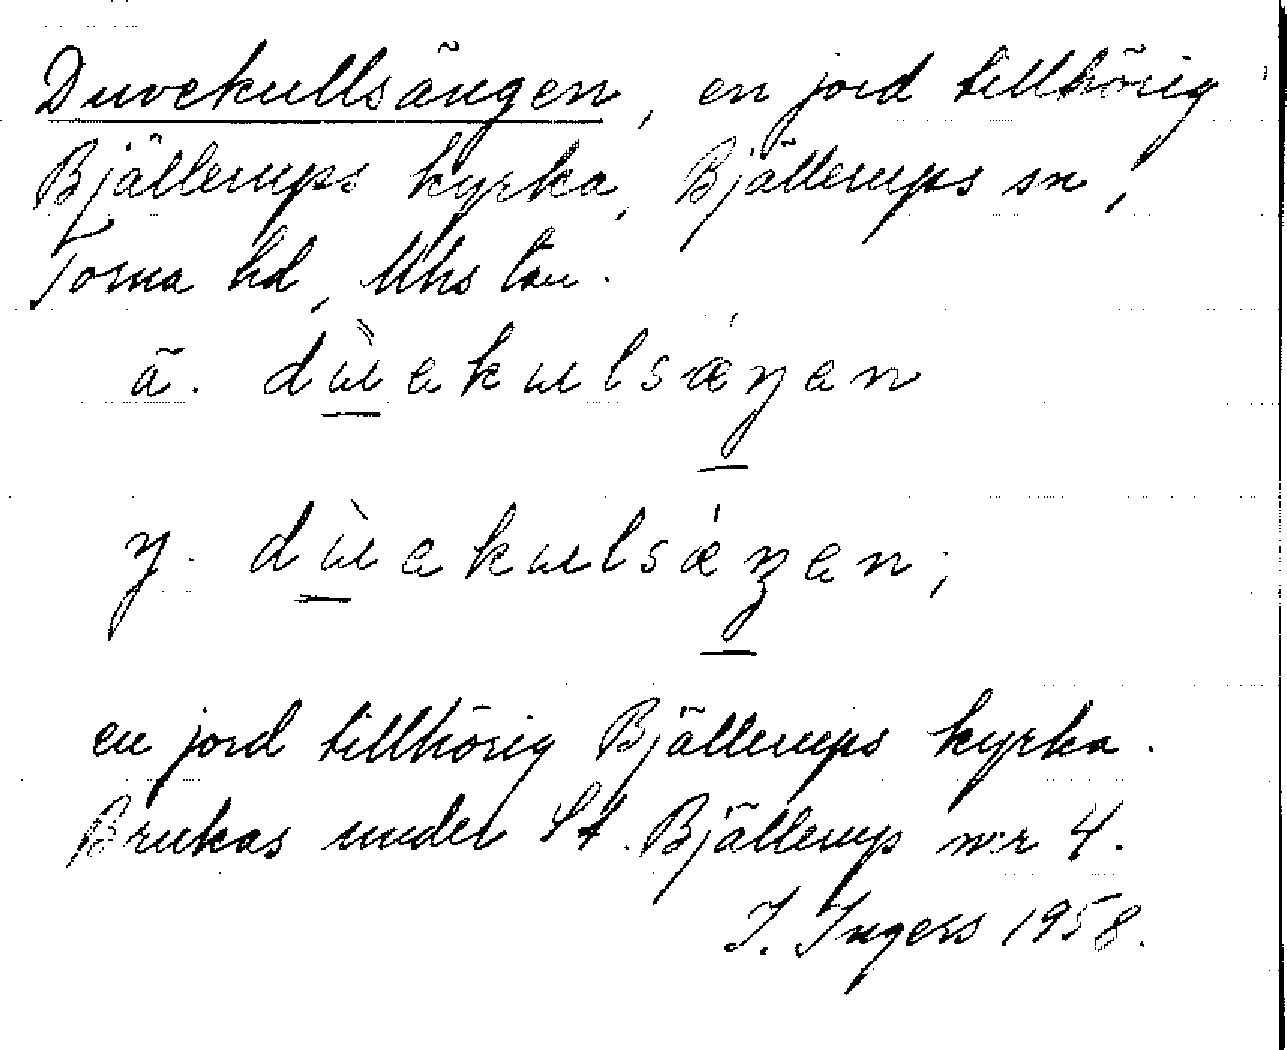 Duvekullsängen, en jord tillhörig
Bjällerups kyrka, Bjällerups sn,
Torna hd, Mhs län.
ä. dùᵫekulsǽŋen
y. dùᵫekulsǽŋen;
en jord tillhörig Bjällerups kyrka.
Brukas under St. Bjällerup nr 4.
I. Ingers 1958.